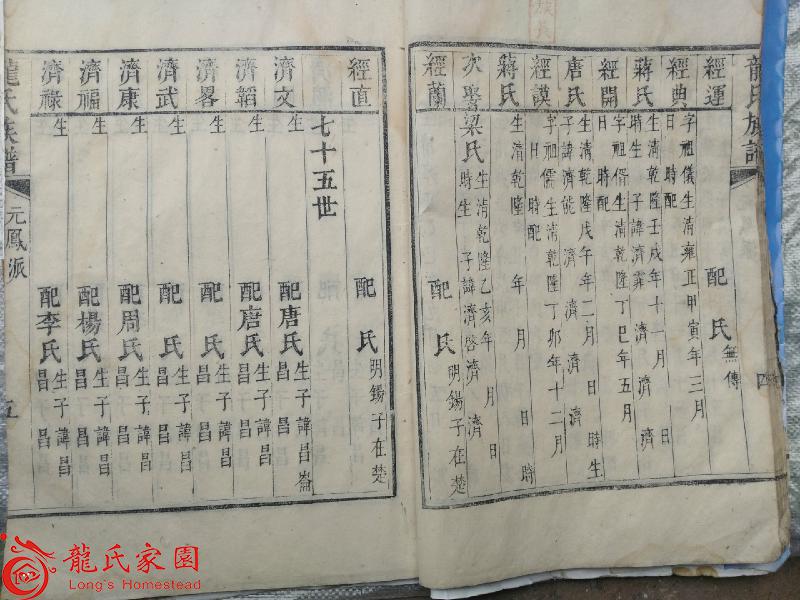 龍氏族譜
經運 配 氏 無傳
經典 字祖儀生清雍正甲寅年三月
日 時配
蔣氏 生清乾隆壬戌年十一月 日
時生 子諱濟霏 濟 濟 濟
經開 字祖儒生清乾隆丁巳年五月
日 時配
唐氏 生清乾隆戊午年二月 日 時生
子諱濟能 濟 濟 濟
經謨 字祖儒生清乾隆丁卯年十二月
日 時配
蔣氏 生清乾隆 年 月 日 時
次娶梁氏 生清乾隆乙亥年 月 日
時生 子諱濟啓濟 濟
經蘭 配 氏 明錫子在楚
經直 配 氏 明錫子在楚
七十五世
濟文 生 配唐氏 生子諱昌崙
昌
濟韜 生 配唐氏 生子諱昌
昌 昌
濟畧 生 配 氏 生子諱昌
昌 昌
濟武 生 配 氏 生子諱昌
昌 昌
濟康 生 配周氏 生子諱昌
昌 昌
濟福 生 配楊氏 生子諱昌
昌 昌
濟祿 生 配李氏 生子諱昌
昌 昌
龍氏族譜 元鳳派 五
龍氏家園
Long's Homestead